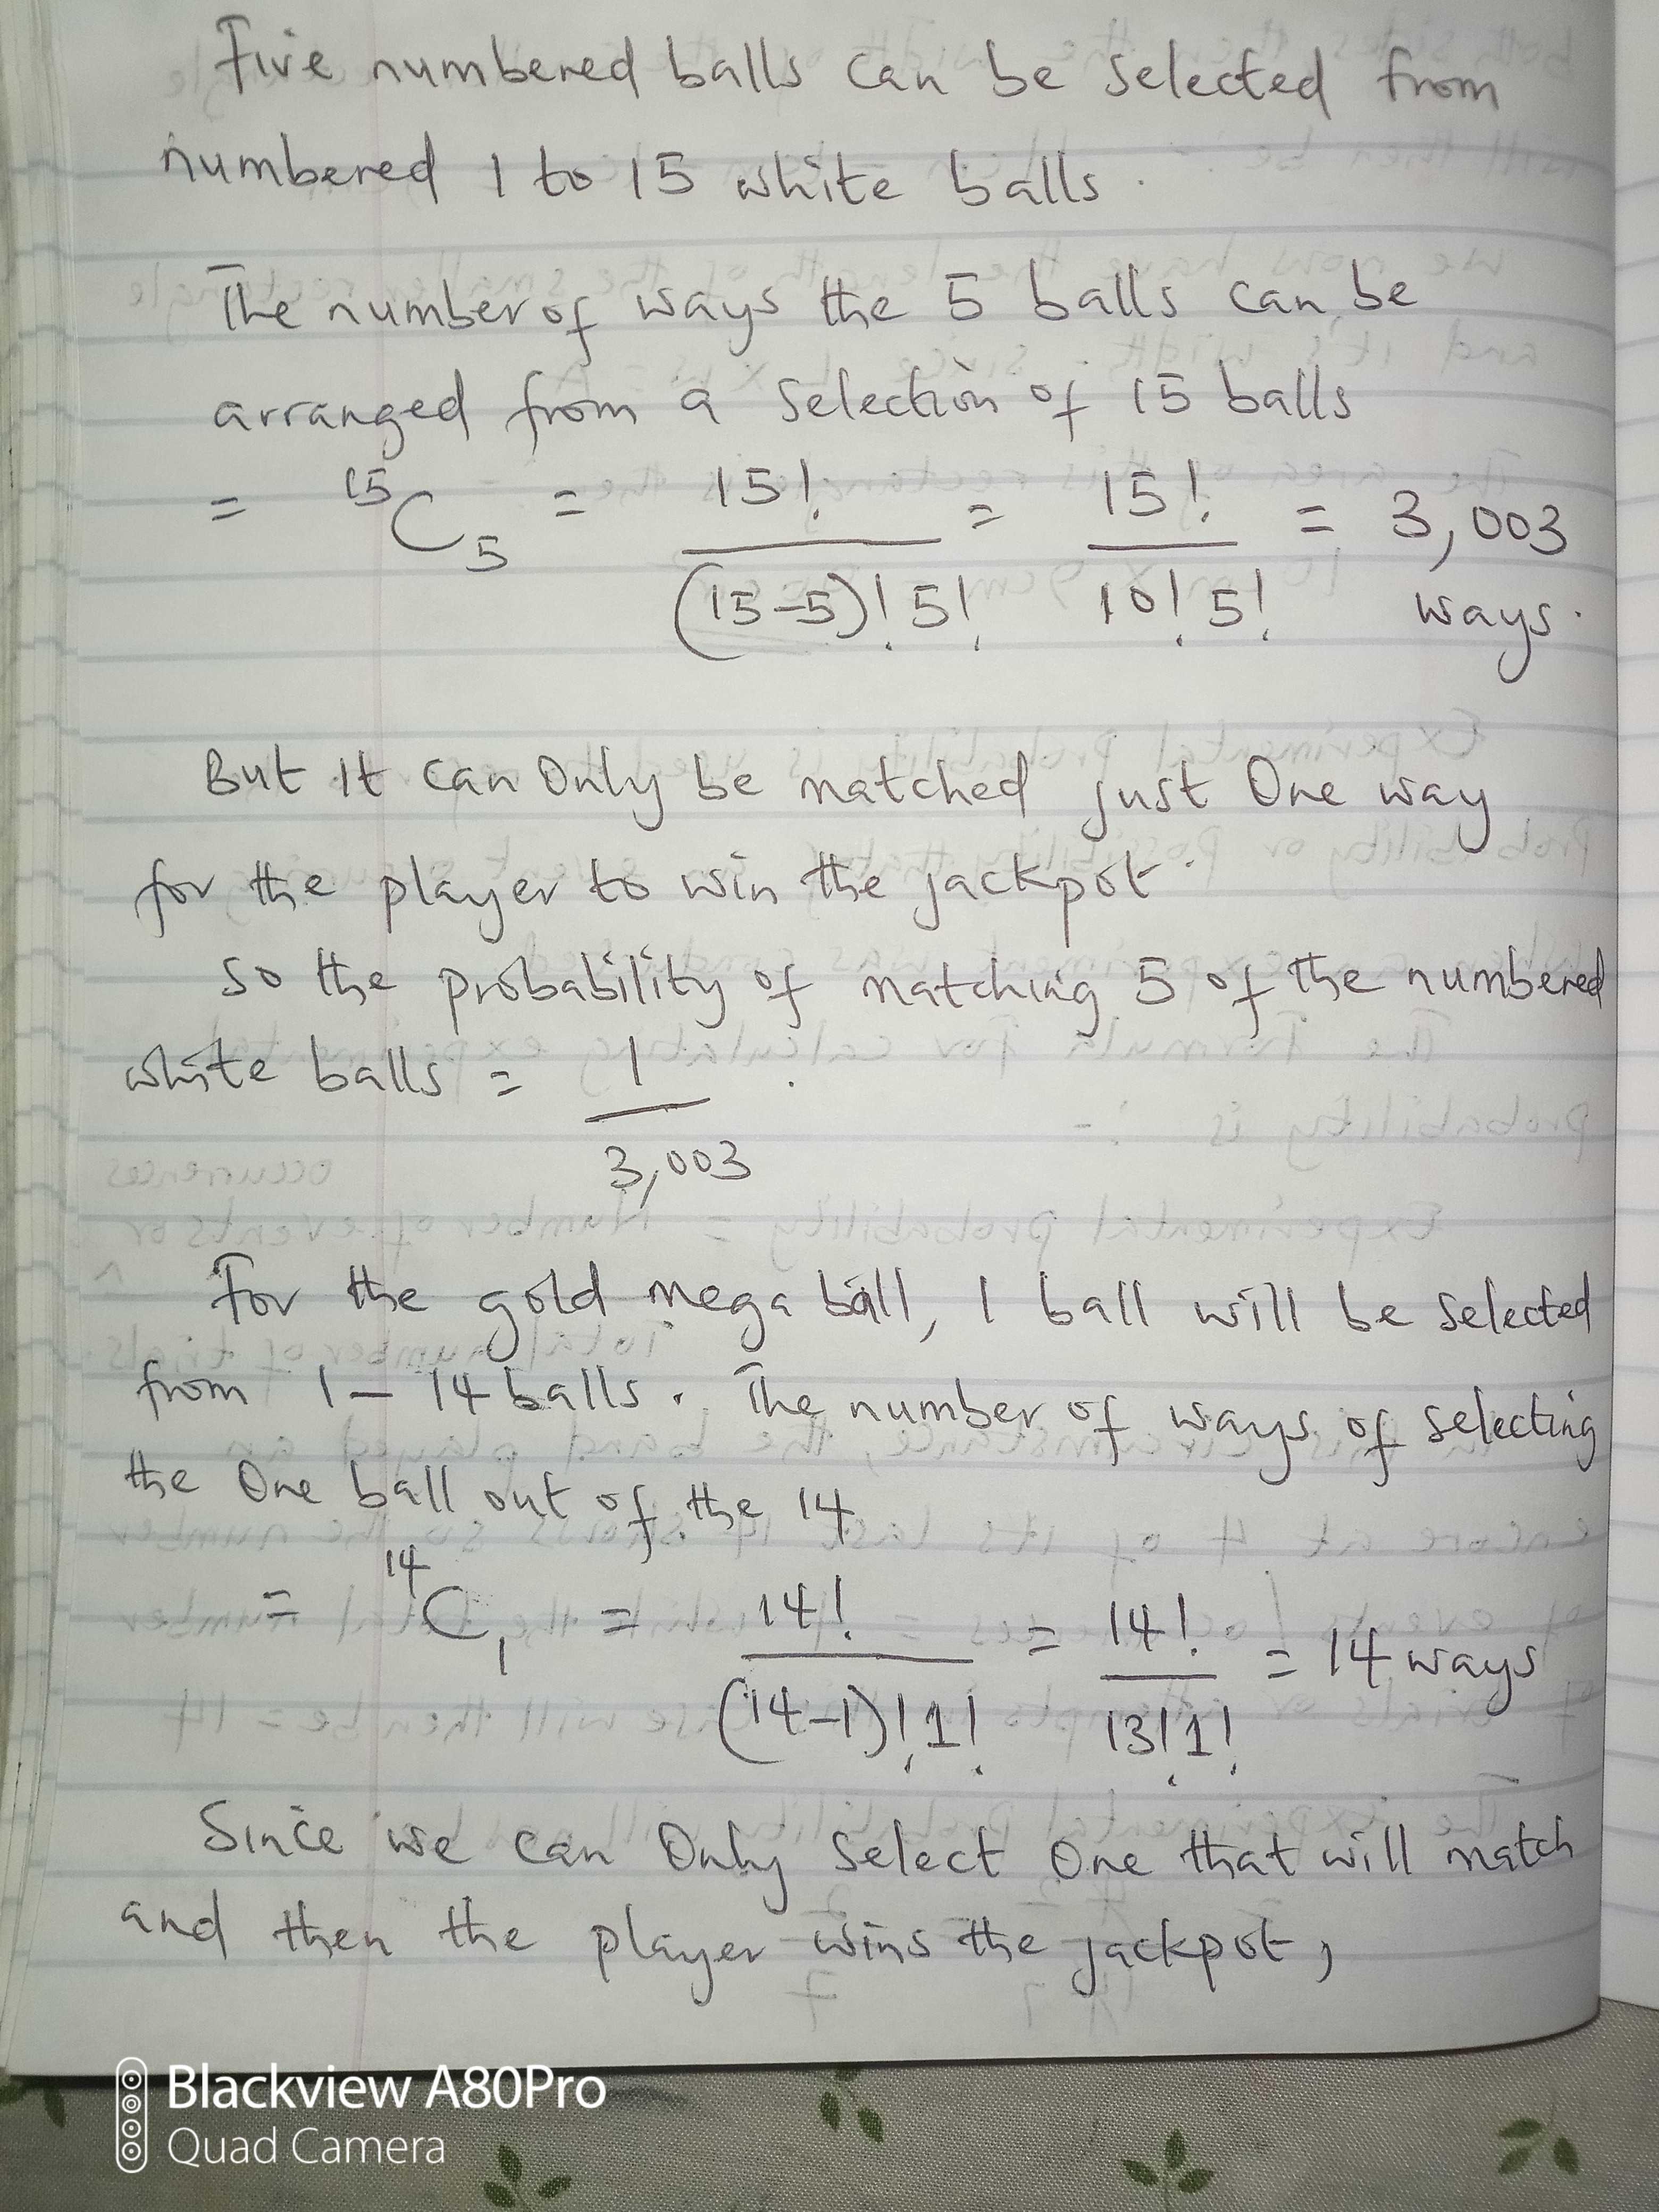 Five numbered balls can be selected from
numbered 1 to 15 white balls.
The number of ways the 5 balls can be
arranged from a selection of 15 balls
= ¹⁵C₅ = 15!/(15-5)!5! = 15!/10!5! = 3,003
ways.
But it can only be matched just one way
for the player to win the jackpot.
So the probability of matching 5 of the numbered
white balls = 1/3,003.
For the gold mega ball, 1 ball will be selected
from 1 – 14 balls. The number of ways of selecting
the one ball out of the 14
= ¹⁴C₁ = 14!/(14-1)!1! = 14!/13!1! = 14 ways
Since we can only select one that will match
and then the player wins the jackpot,
Blackview A80Pro
Quad Camera